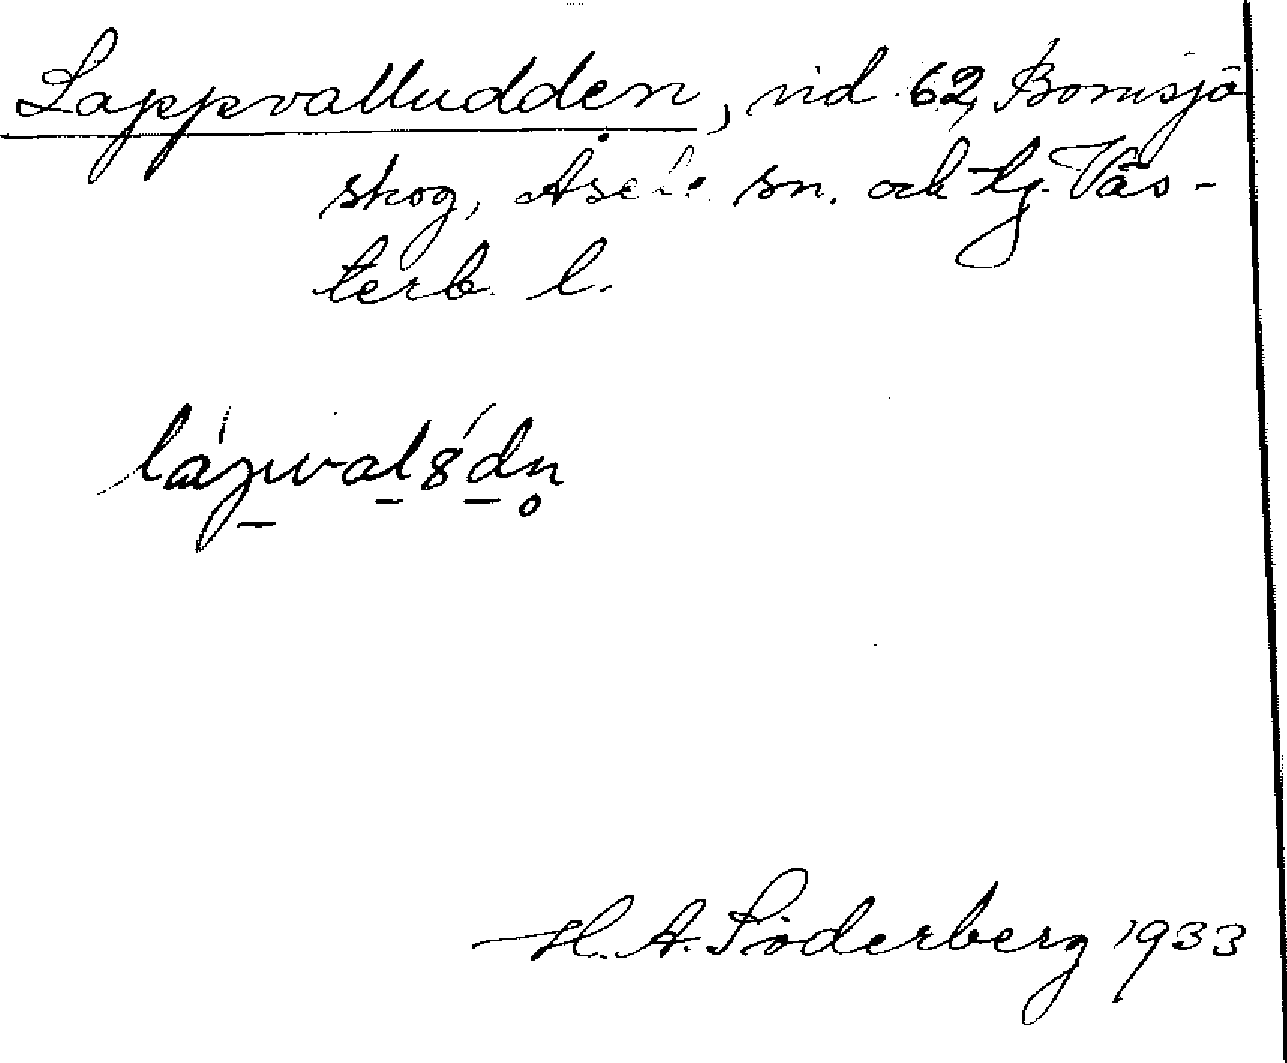 Lappvalludden, vid 62, Bomsjö
skog, Åsele sn. och tg. Väs-
terb. l.
H. A. Söderberg 1933